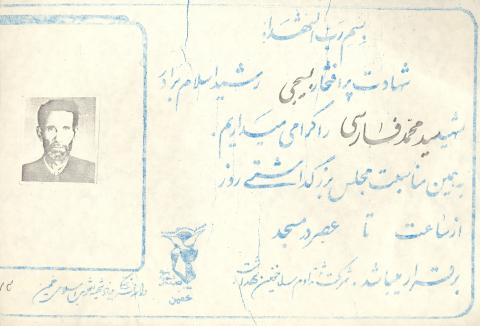 بسم رب الشهداء
شهادت پر افتخار بسیجی رشید اسلام برادر
شهید سید محمد فارسی را گرامی میداریم.
به همین مناسبت مجلس بزرگداشتی روز
از ساعت تا عصر در مسجد
برقرار میباشد. شرکت شما
خمین